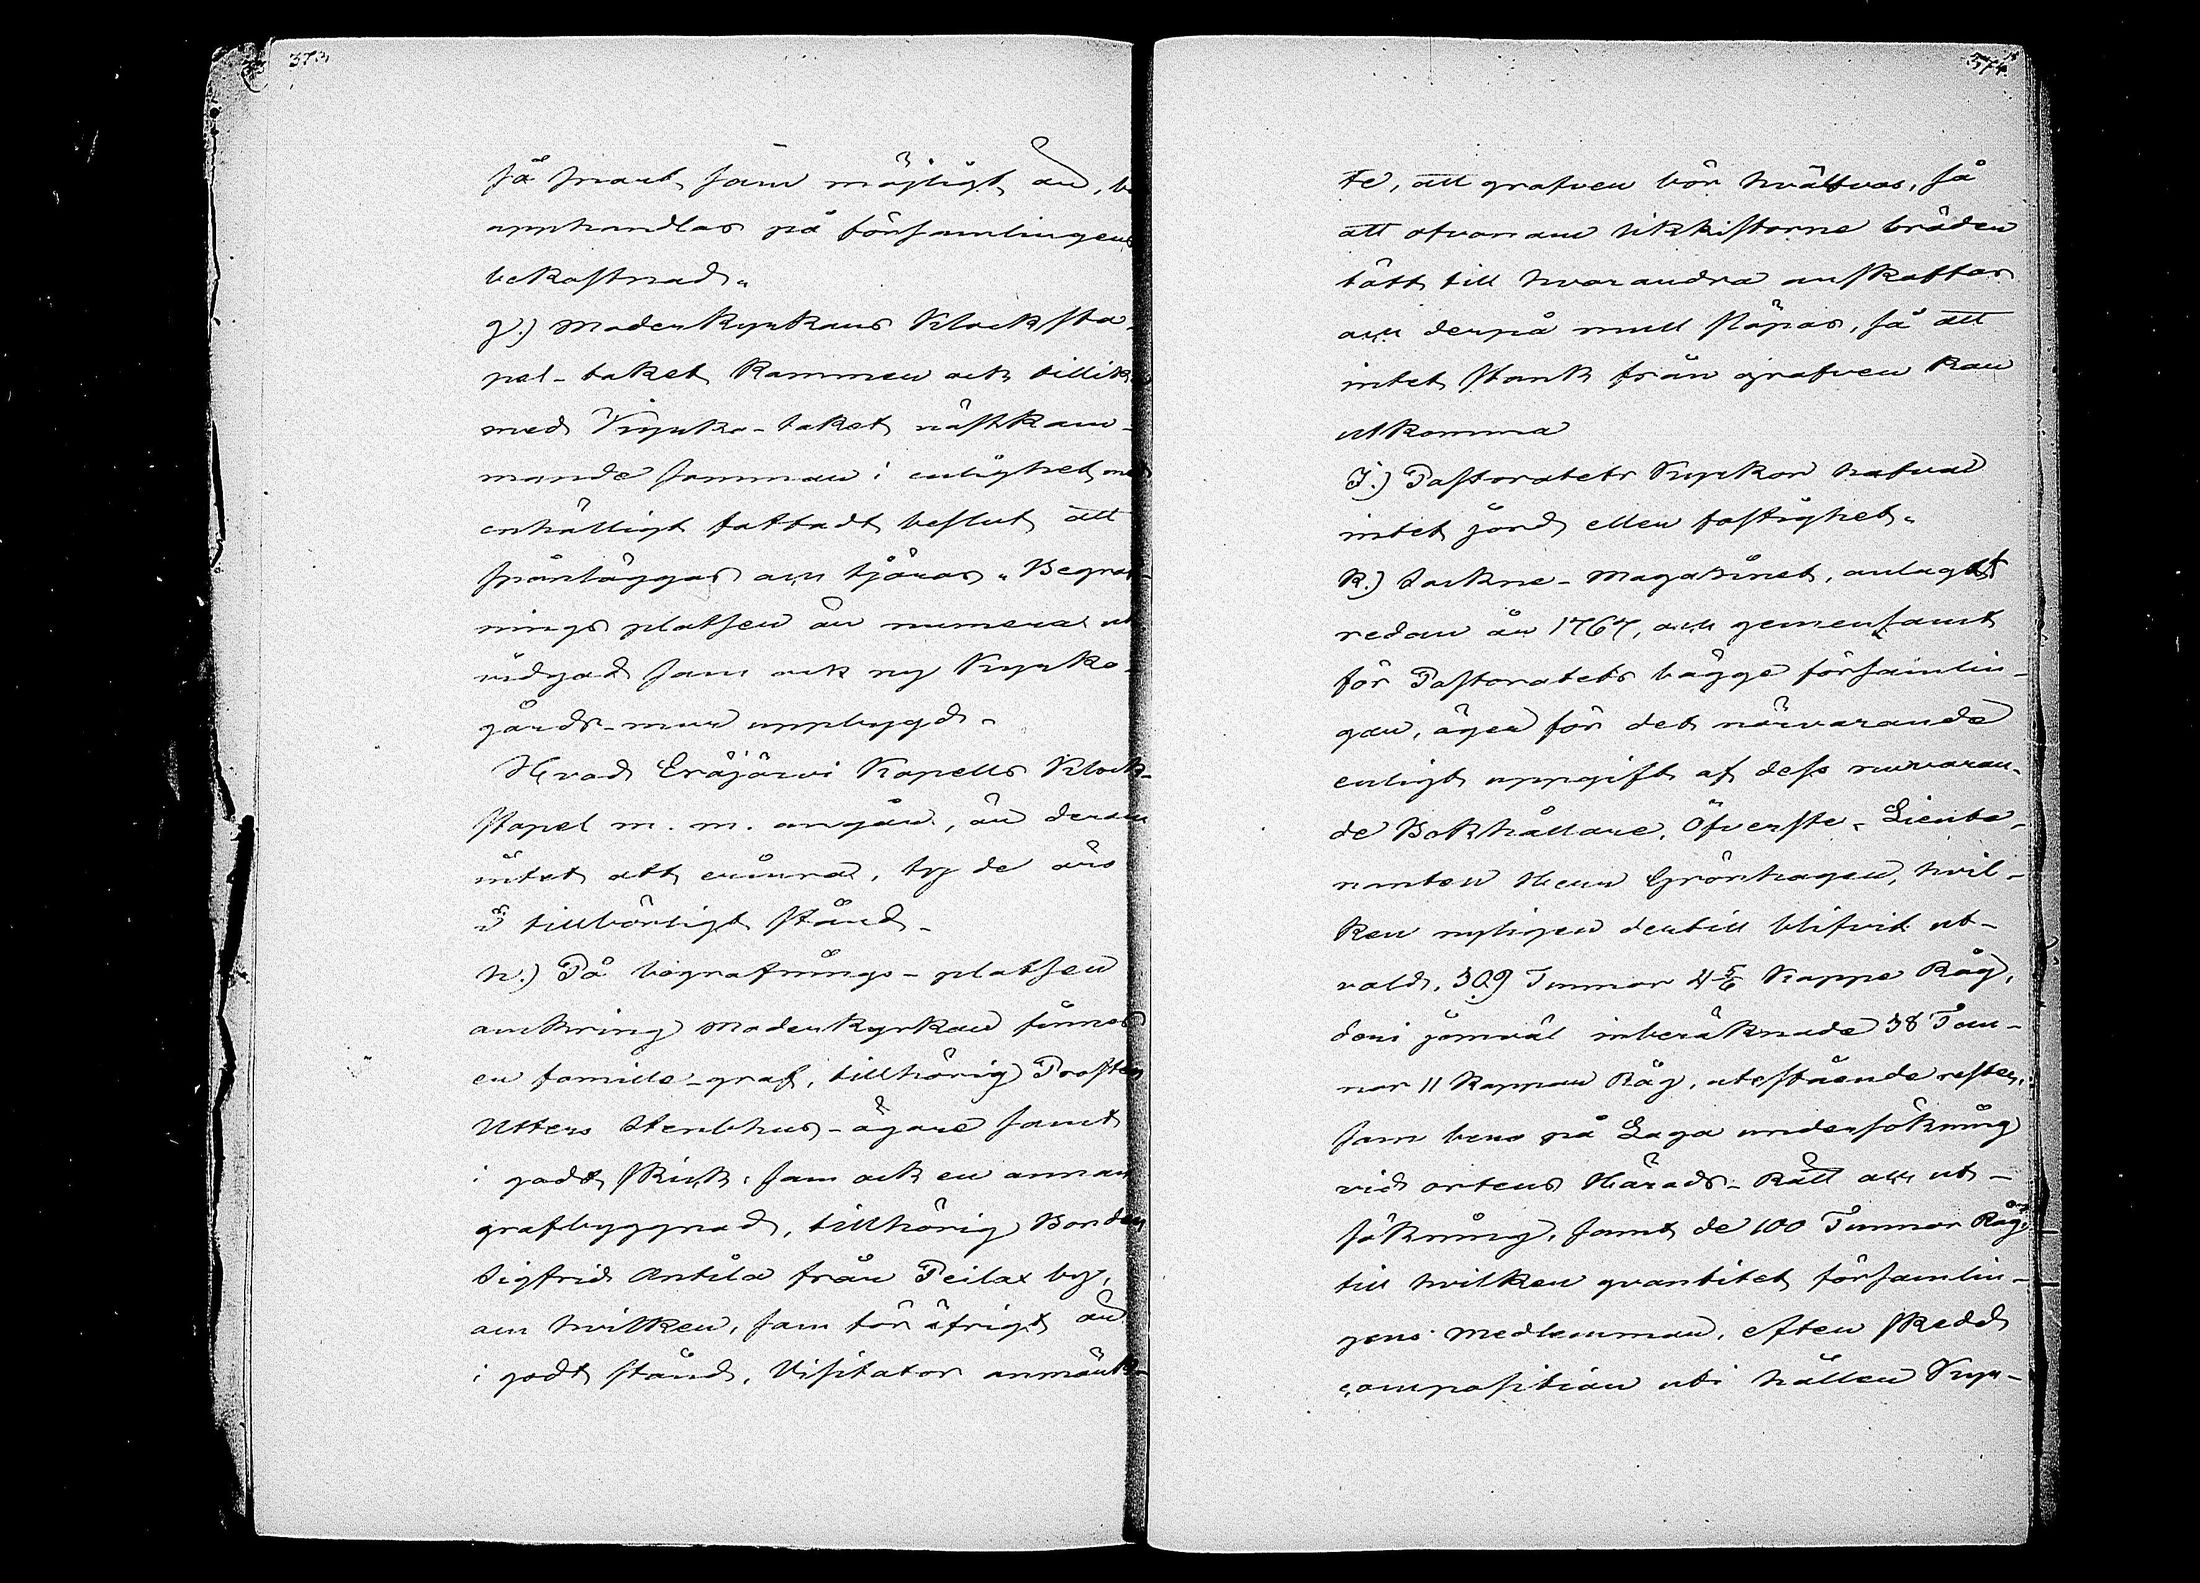 373
så snart som möjligt är,
upphandlas på församlingens
bekostnad.
g.) Moderkyrkans Klocksta-
pel-taket kommer ock tillika
med Kyrko-taket nästkom-
mande sommar i enlighet med
enhälligt fattadt beslut att
spånläggas och tjäras. Begraf-
nings platsen är numera ut
vidgad som ock ny Kyrko-
gårds-mur uppbygd.
Hvad Eräjärvi Kapells Klock-
stapel m. m. angår, är derom
intet att erinra, ty de äro
i tillbörligt stånd.
h.) På begrafnings-platsen
omkring Moderkyrkan finnes
en familie-graf, tillhörig Prosten
Utters Sterbhus-ägare samt
i godt skick, som ock en annan
grafbyggnad, tillhörig Bonden
Sigfrid Antila från Peilax by,
om hvilken, som för öfrigt är
i godt stånd, Visitator anmärk-
374.
te, att grafven bör hvälfvas, så
att ofvanom likkistorne bräden
tätt till hvarandra anskaffas
och derpå mull släpas, så att
intet stank från grafven kan
utkomma
I.) Pastoratets Kyrkor hafva
intet jord eller fastighet.
K.) Sockne-Magasinet, anlagdt
redan år 1767, och gemensamt
för Pastoratets bägge församlin-
gar, äger för det närvarande
enligt uppgift af dess nuvaran-
de Bokhållare, Öfverste-Lieute-
nanten Herr Grönhagen, hvil-
ken nyligen dertill blifvit ut-
vald, 309 Tunnor 4 5/6 Kappe Råg,
deri jemväl inberäknade 38 Tun-
nor 11 Kappar Råg, utestående rester,
som bero på Laga undersökning
vid ortens Härads-Rätt och ut-
sökning, samt de 100 Tunnor Råg,
till hvilken qvantitet församlin-
gens medlemmar, efter skedd
composition uti hållen Kyr-